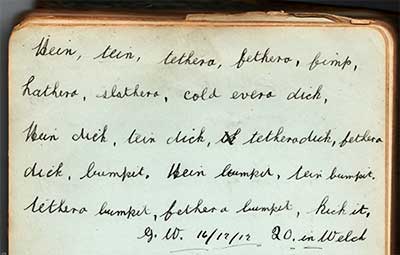 Hein, tein, tethera, fethera, fimp,
hathera, slathera, cold evera dick,
Hein dick, tein dick, tetheradick, fethera
dick, bumpit. Hein bumpit, tein bumpit.
tethera bumpit, fethera bumpit, kick it,
G. W. 16/12/12 20. in Welch